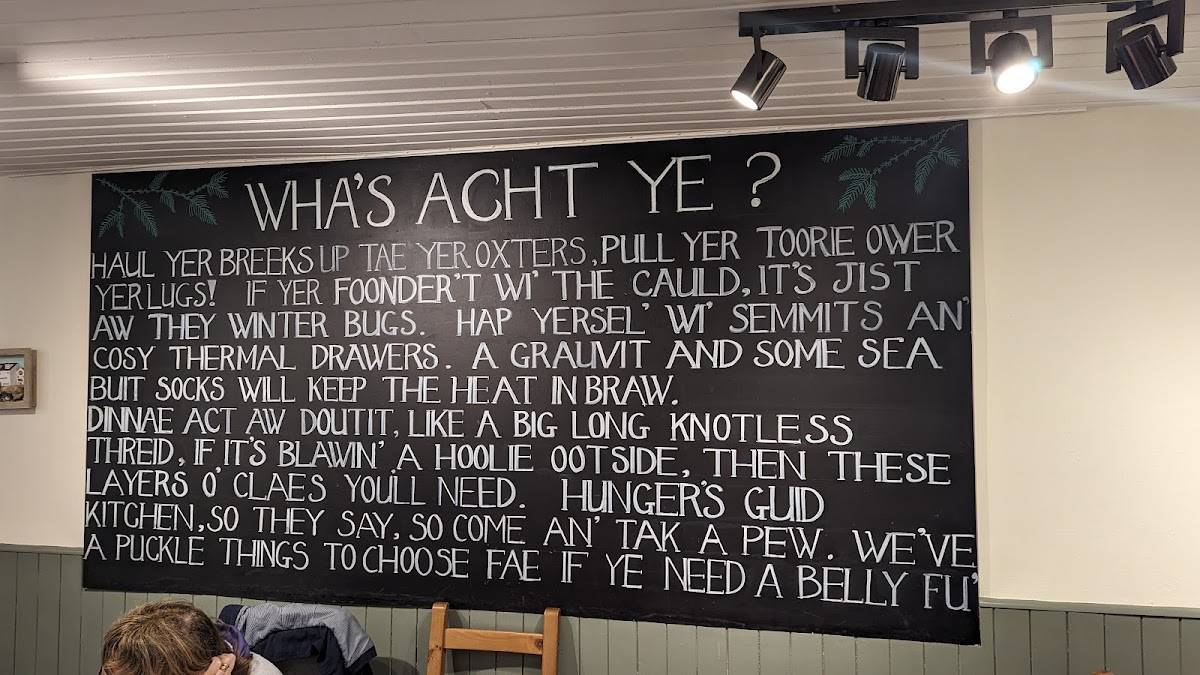 WHA'S ACHT YE ?
HAUL YER BREEKS UP TAE YER OXTERS, PULL YER TOORIE OWER
YER LUGS! IF YER FOONDER'T WI' THE CAULD, IT'S JIST
AW THEY WINTER BUGS. HAP YERSEL' WI' SEMMITS AN'
COSY THERMAL DRAWERS. A GRAUVIT AND SOME SEA
BUIT SOCKS WILL KEEP THE HEAT IN BRAW.
DINNAE ACT AW DOUTIT, LIKE A BIG LONG KNOTLESS
THREID, IF IT'S BLAWIN' A HOOLIE OOTSIDE, THEN THESE
LAYERS O' CLAES YOU'LL NEED. HUNGER'S GUID
KITCHEN, SO THEY SAY, SO COME AN' TAK A PEW. WE'VE
A PUCKLE THINGS TO CHOOSE FAE IF YE NEED A BELLY FU'